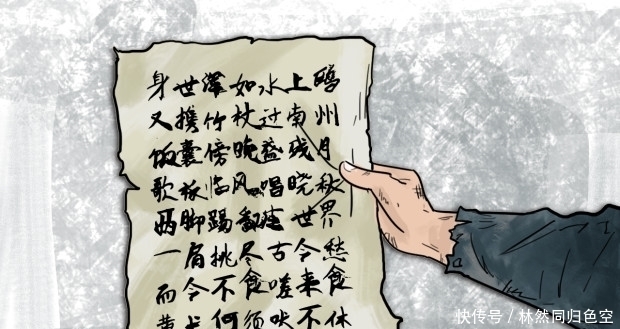 身世渾如水上鸥
又携竹杖过南州
饭囊傍晚盛残月
歌板临风唱晓秋
两脚踢翻尘世界
一肩挑尽古今愁
而今不食嗟来食
黄犬何须吠不休
快传号 / 林然同归色空